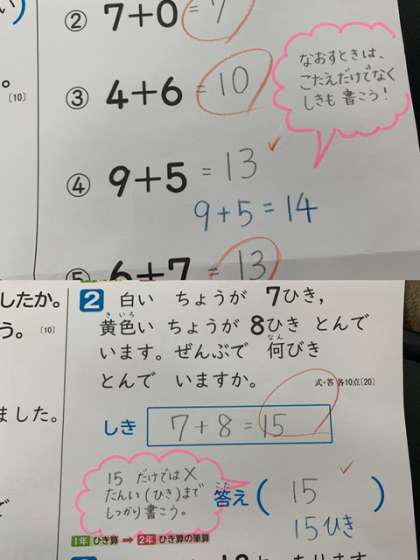 ② 7+0 = 7
③ 4+6 = 10
なおすときは、
こたえだけでなく
しきも 書こう!
〔10〕
④ 9+5 = 13
9+5=14
⑤ 6+7 = 13
したか。
う。〔10〕
ました。
2 白い ちょうが 7ひき,
黄色い ちょうが 8ひき とんで
きいろ
います。ぜんぶで 何びき
なん
とんで いますか。
式・答 各10点〔20〕
しき 7+8=15
15 だけでは×
たんい(ひき)まで
しっかり書こう。
答え ( 15 )
こた
15ひき
1年 ひき算 ➡ 2年 ひき算の筆算